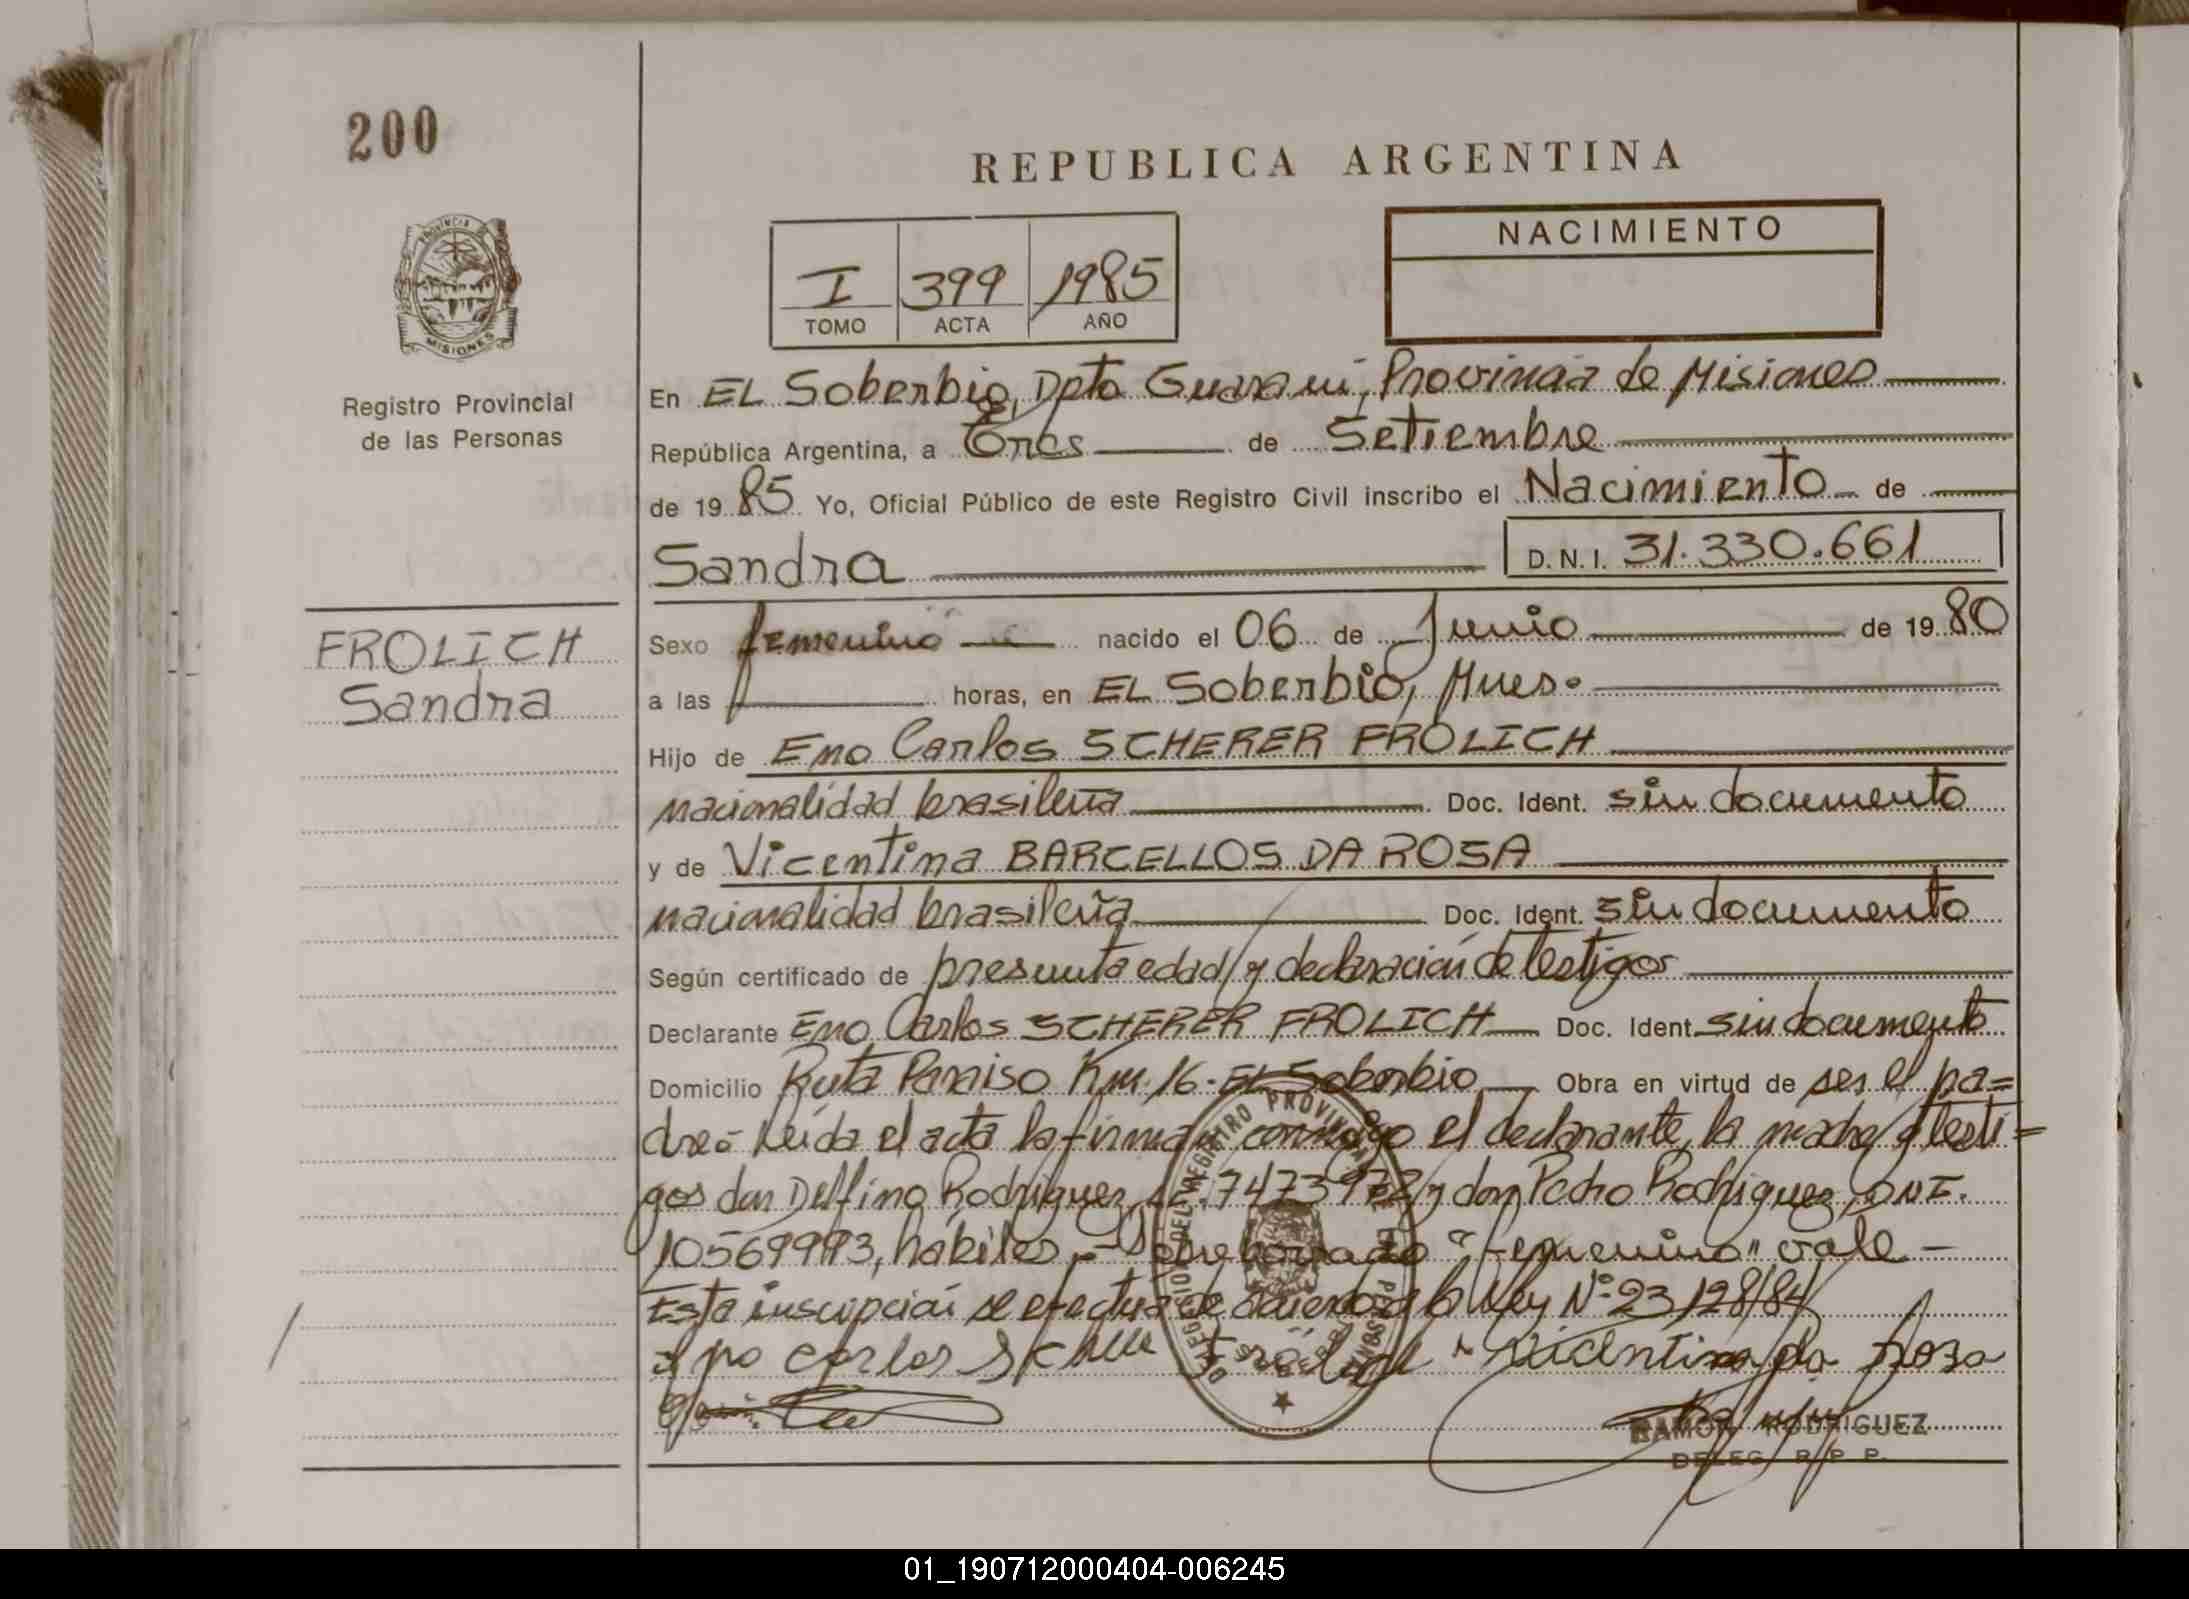 200
REPUBLICA ARGENTINA
PROVINCIA DE
MISIONES
Registro Provincial
de las Personas
I 399 1985
TOMO ACTA AÑO
NACIMIENTO
En EL Soberbio, Dpto Guarani, Provincia de Misiones
República Argentina, a Tres de Setiembre
de 1985 Yo, Oficial Público de este Registro Civil inscribo el Nacimiento de
Sandra D.N.I. 31.330.661
FROLICH
Sandra
Sexo femenino nacido el 06 de Junio de 1980
a las horas, en EL Soberbio, Mnes.
Hijo de Eno Carlos SCHERER FROLICH
nacionalidad brasileña Doc. Ident. sin documento
y de Vicentina BARCELLOS DA ROSA
nacionalidad brasileña Doc. Ident. sin documento
Según certificado de presunta edad y declaración de testigos
Declarante Eno Carlos SCHERER FROLICH Doc. Ident. sin documento
Domicilio Ruta Paraiso Km. 16 - EL Soberbio Obra en virtud de ser el pa=
dre - Leída el acta la firman conmigo el declarante, la madre y testi=
gos don Delfino Rodriguez, 7473972 y don Pedro Rodriguez, DNI.
10569993, hábiles.- Sobreborrado "femenino" vale.-
Esta inscripción se efectua de acuerdo a la Ley Nº 23128/84
Eno Carlos Frolich Vicentina da Rosa
RAMON RODRIGUEZ
DELEG. R. P. P.
01_190712000404-006245